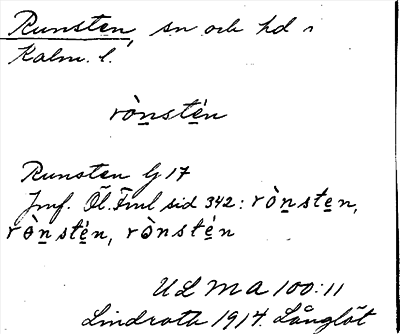 Runsten, sn och hd i
Kalm. l.
rò̱nsté̱n
Runsten G 17
Jmf. Öl. Fml sid 342: rò̱nste̱n,
rò̱nsté̱n, rònsté̱n
ULMA 100:11
Lindroth 1914. Långlöt